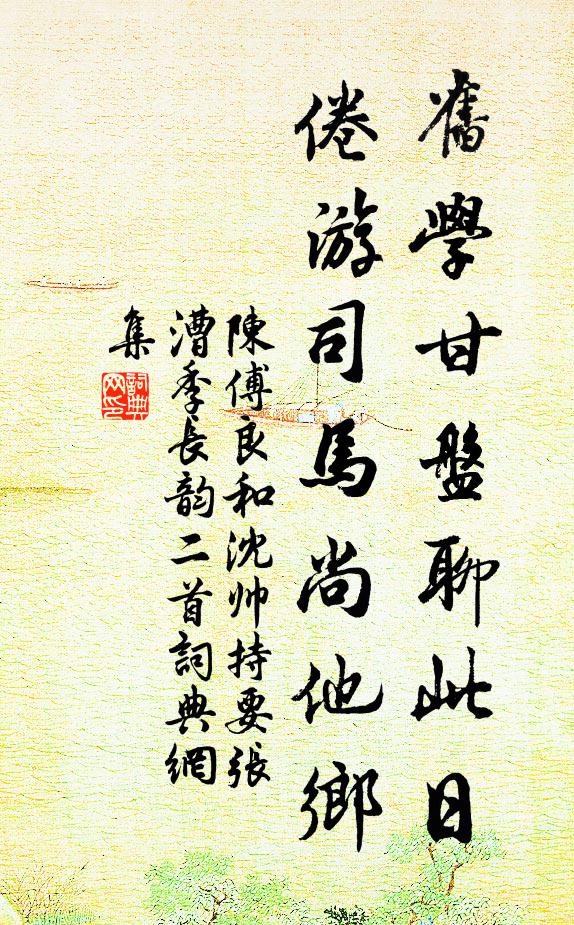 舊學甘盤聊此日
倦游司馬尚他鄉
陳傅良和沈帅持要張
漕季長韵二首詞典網
集
詞典
网印